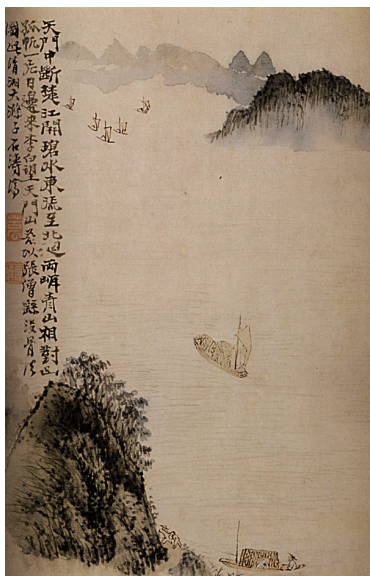 天門中斷楚江開碧水東流至北迴兩岸青山相對出
孤帆一片日邊來李白望天門山以張僧繇沒骨法
圖此清湘大滌子石濤濟